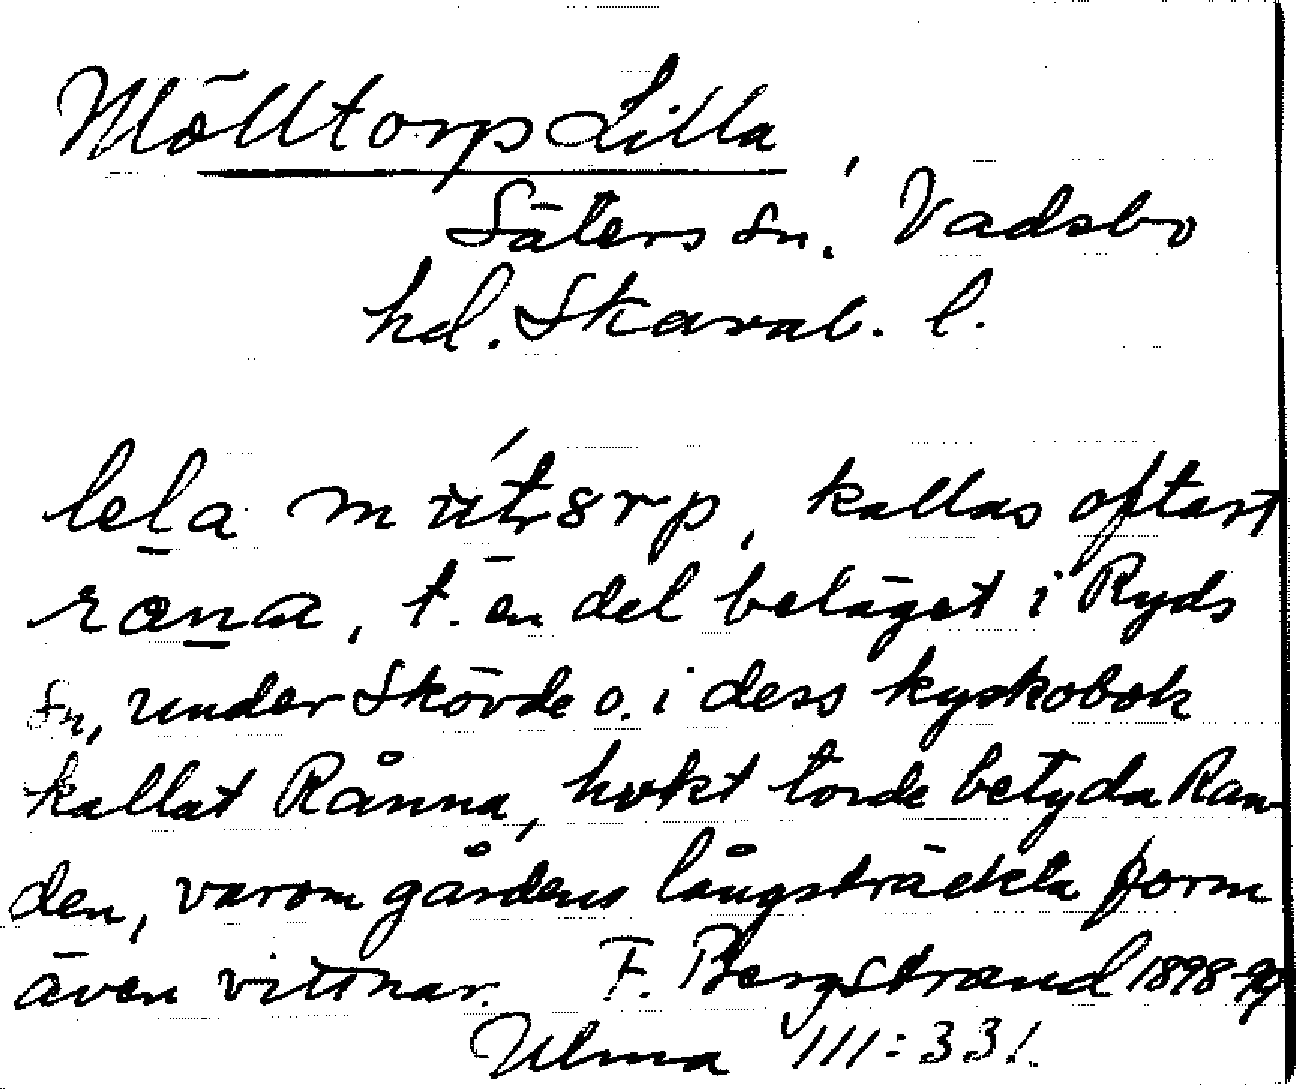 Mölltorp Lilla,
Säters sn. Vadsbo
hd. Skarab. l.
kallas oftast
t. en del beläget i Ryds
sn, under Skövde o. i dess kyrkobok
kallat Rånna, hvket torde betyda Ran-
den, varom gårdens långsträckta form
även vittnar. F. Bergstrand 1898-99
Ulma III:331.